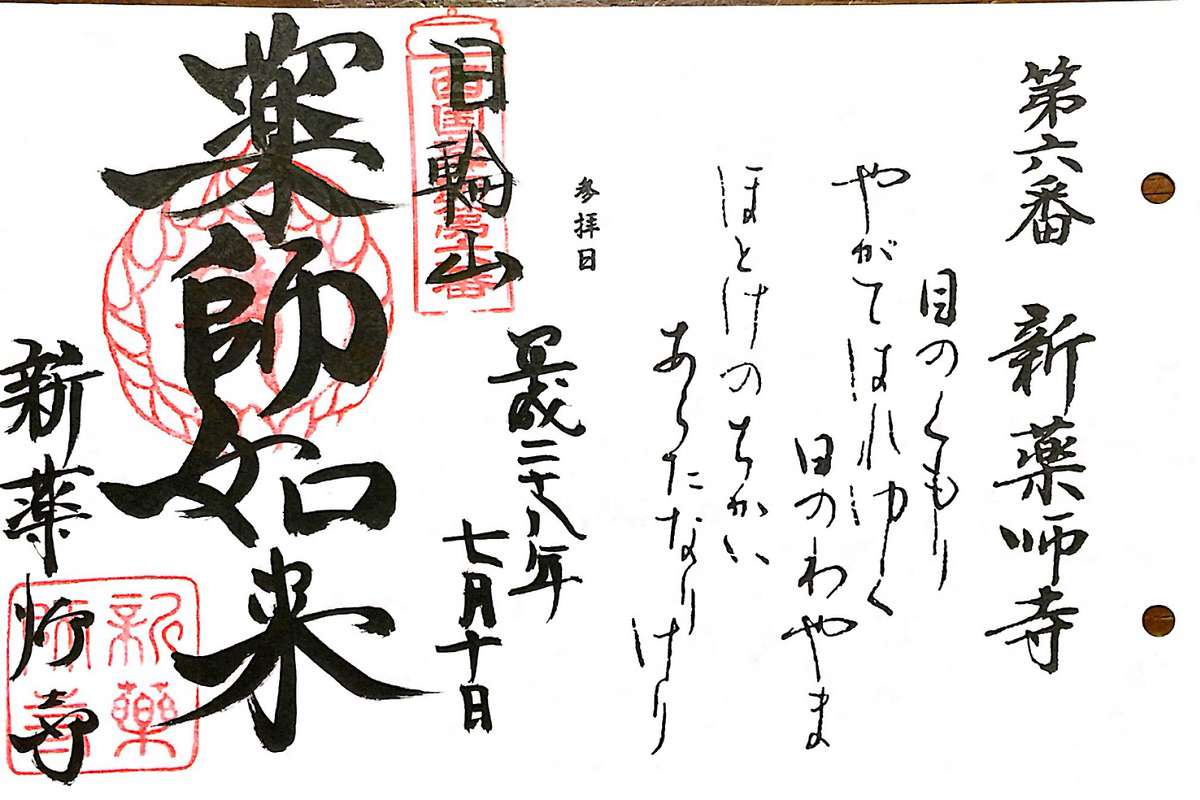 第六番 新薬師寺
目のくもり
やがてはれゆく
日のわやま
ほとけのちかい
あらたなり
けり
参拝日
平成二十八年
七月十日
日輪山
薬師如来
新薬師寺
新薬
師寺